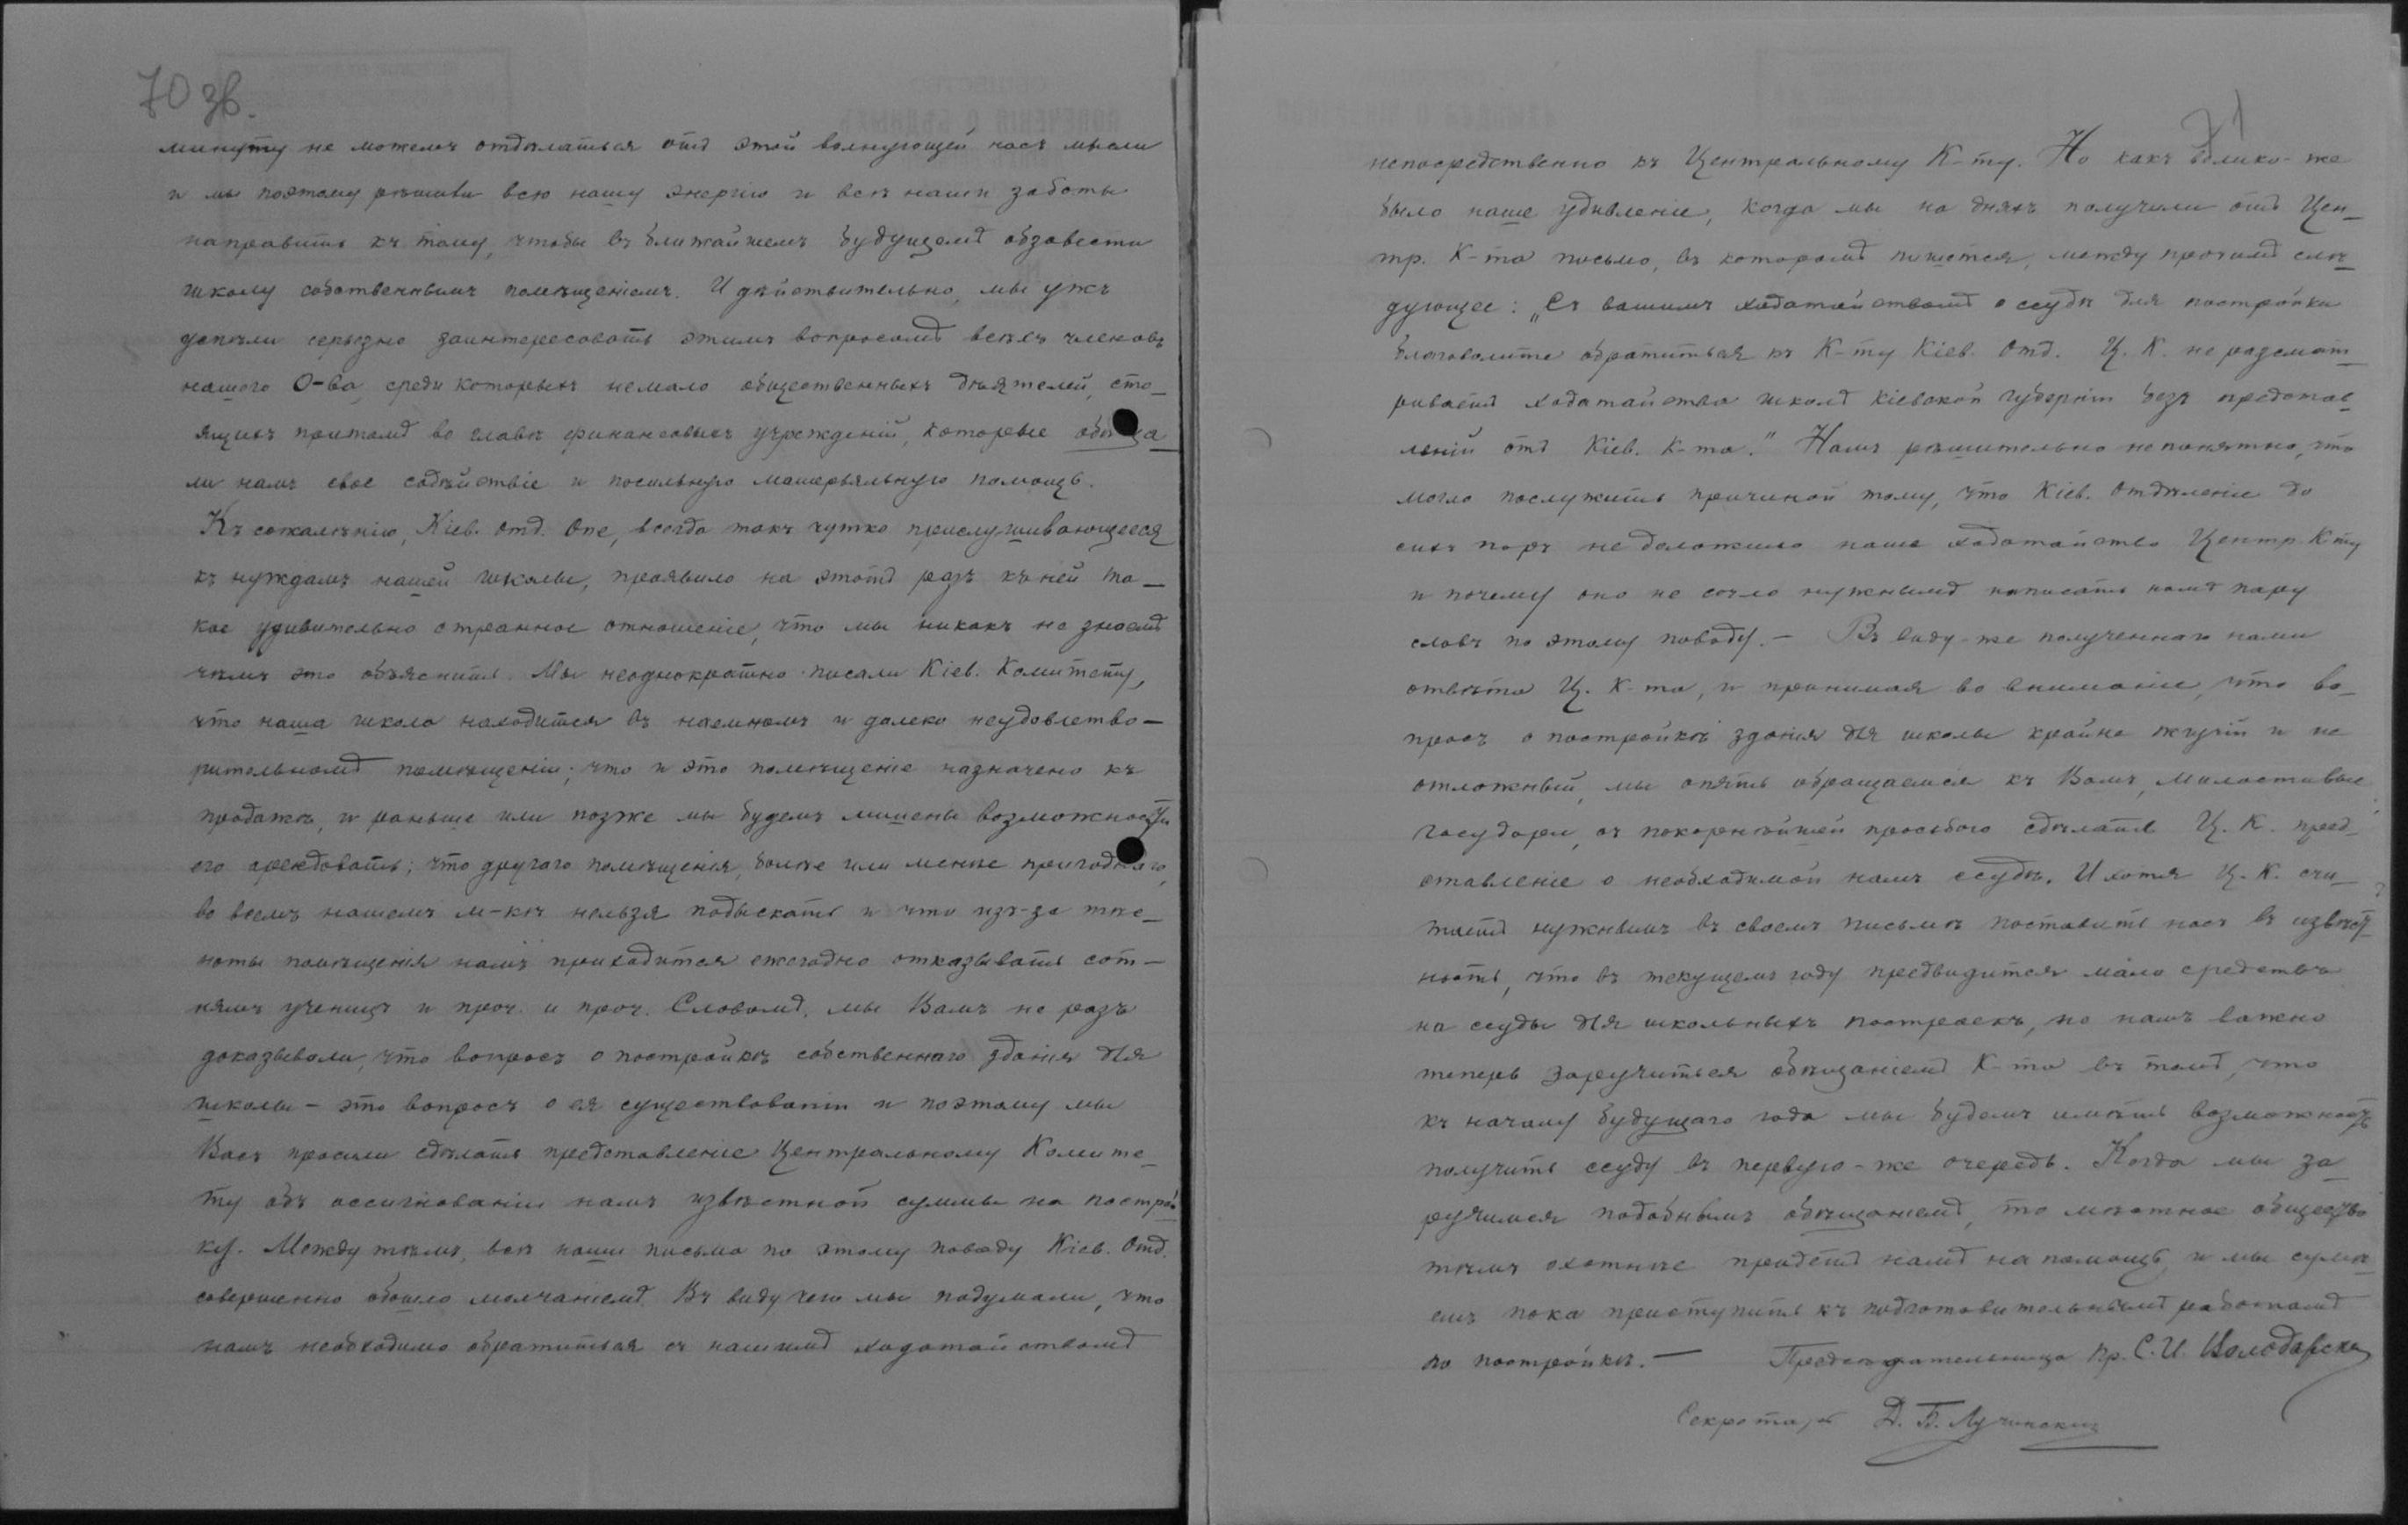 70 зв.
минуту не можемъ отдѣлаться отъ этой волнующей насъ мысли
и мы поэтому рѣшили всю нашу энергію и всѣ наши заботы
направить къ тому, чтобы въ ближайшемъ будущемъ обзавести
школу собственнымъ помѣщеніемъ. И дѣйствительно, мы ужъ
успѣли серьезно заинтересовать этимъ вопросомъ всѣхъ членовъ
нашего О-ва, среди которыхъ немало общественныхъ дѣятелей, сто-
ящихъ притомъ во главѣ финансовыхъ учрежденій, которые обѣща-
ли намъ свое содѣйствіе и посильную матерьяльную помощь.
Къ сожалѣнію, Кіев. отд. Опе, всегда такъ чутко прислушивающееся
къ нуждамъ нашей школы, проявило на этотъ разъ къ ней та-
кое удивительно странное отношеніе, что мы никакъ не знаемъ
чѣмъ это объяснить. Мы неоднократно писали Кіев. Комитету,
что наша школа находится въ наемномъ и далеко неудовлетво-
рительномъ помѣщеніи; что и это помѣщеніе назначено къ
продажѣ, и раньше или позже мы будемъ лишены возможности
его арендовать; что другого помѣщенія, болѣе или менѣе пригоднаго,
во всемъ нашемъ м-кѣ нельзя подыскать и что изъ-за тѣс-
ноты помѣщенія намъ приходится ежегодно отказывать сот-
нямъ ученицъ и проч. и проч. Словомъ, мы Вамъ не разъ
доказывали, что вопросъ о постройкѣ собственнаго зданія для
школы - это вопросъ о ея существованіи и поэтому мы
Васъ просили сдѣлать представленіе Центральному Комите-
ту объ ассигнованіи намъ извѣстной суммы на построй-
ку. Между тѣмъ, всѣ наши письма по этому поводу Кіев. Отд.
совершенно обошло молчаніемъ. Въ виду чего мы подумали, что
намъ необходимо обратиться съ нашимъ ходатайствомъ
71
непосредственно къ Центральному К-ту. Но какъ велико-же
было наше удивленіе, когда мы на дняхъ получили отъ Цен-
тр. К-та письмо, въ которомъ пишется, между прочимъ слѣ-
дующее: „Съ вашимъ ходатайствомъ о ссудѣ для постройки
благоволите обратиться къ К-ту Кіев. Отд. Ц. К. не разсмат-
риваетъ ходатайства школъ Кіевской губерніи безъ представ-
леній отъ Кіев. К-та." Намъ рѣшительно непонятно, что
могло послужить причиной тому, что Кіев. Отдѣленіе до
сихъ поръ не доложило наше ходатайство Центр. К-ту
и почему оно не сочло нужнымъ написать намъ пару
словъ по этому поводу. - Въ виду-же полученнаго нами
отвѣта Ц. К-та, и принимая во вниманіе, что во-
просъ о постройкѣ зданія для школы крайне жгучій и не
отложный, мы опять обращаемся къ Вамъ, милостивые
государи, съ покорнѣйшей просьбою сдѣлать Ц. К. пред-
ставленіе о необходимой намъ ссудѣ. И хотя Ц. К. счи-
таетъ нужнымъ въ своемъ письмѣ поставить насъ въ извѣст-
ность, что въ текущемъ году предвидится мало средствъ
на ссуды для школьныхъ построекъ, но намъ важно
теперь заручиться обѣщаніемъ К-та въ томъ, что
къ началу будущаго года мы будемъ имѣть возможность
получить ссуду въ первую-же очередь. Когда мы за-
ручимся подобнымъ обѣщаніемъ, то мѣстное общество
тѣмъ охотнѣе придетъ намъ на помощь, и мы сумѣ-
емъ пока приступить къ подготовительнымъ работамъ
по постройкѣ. - Предсѣдательница Пр. С. И. Володарская
Секретарь Д. Б. Лучинскій